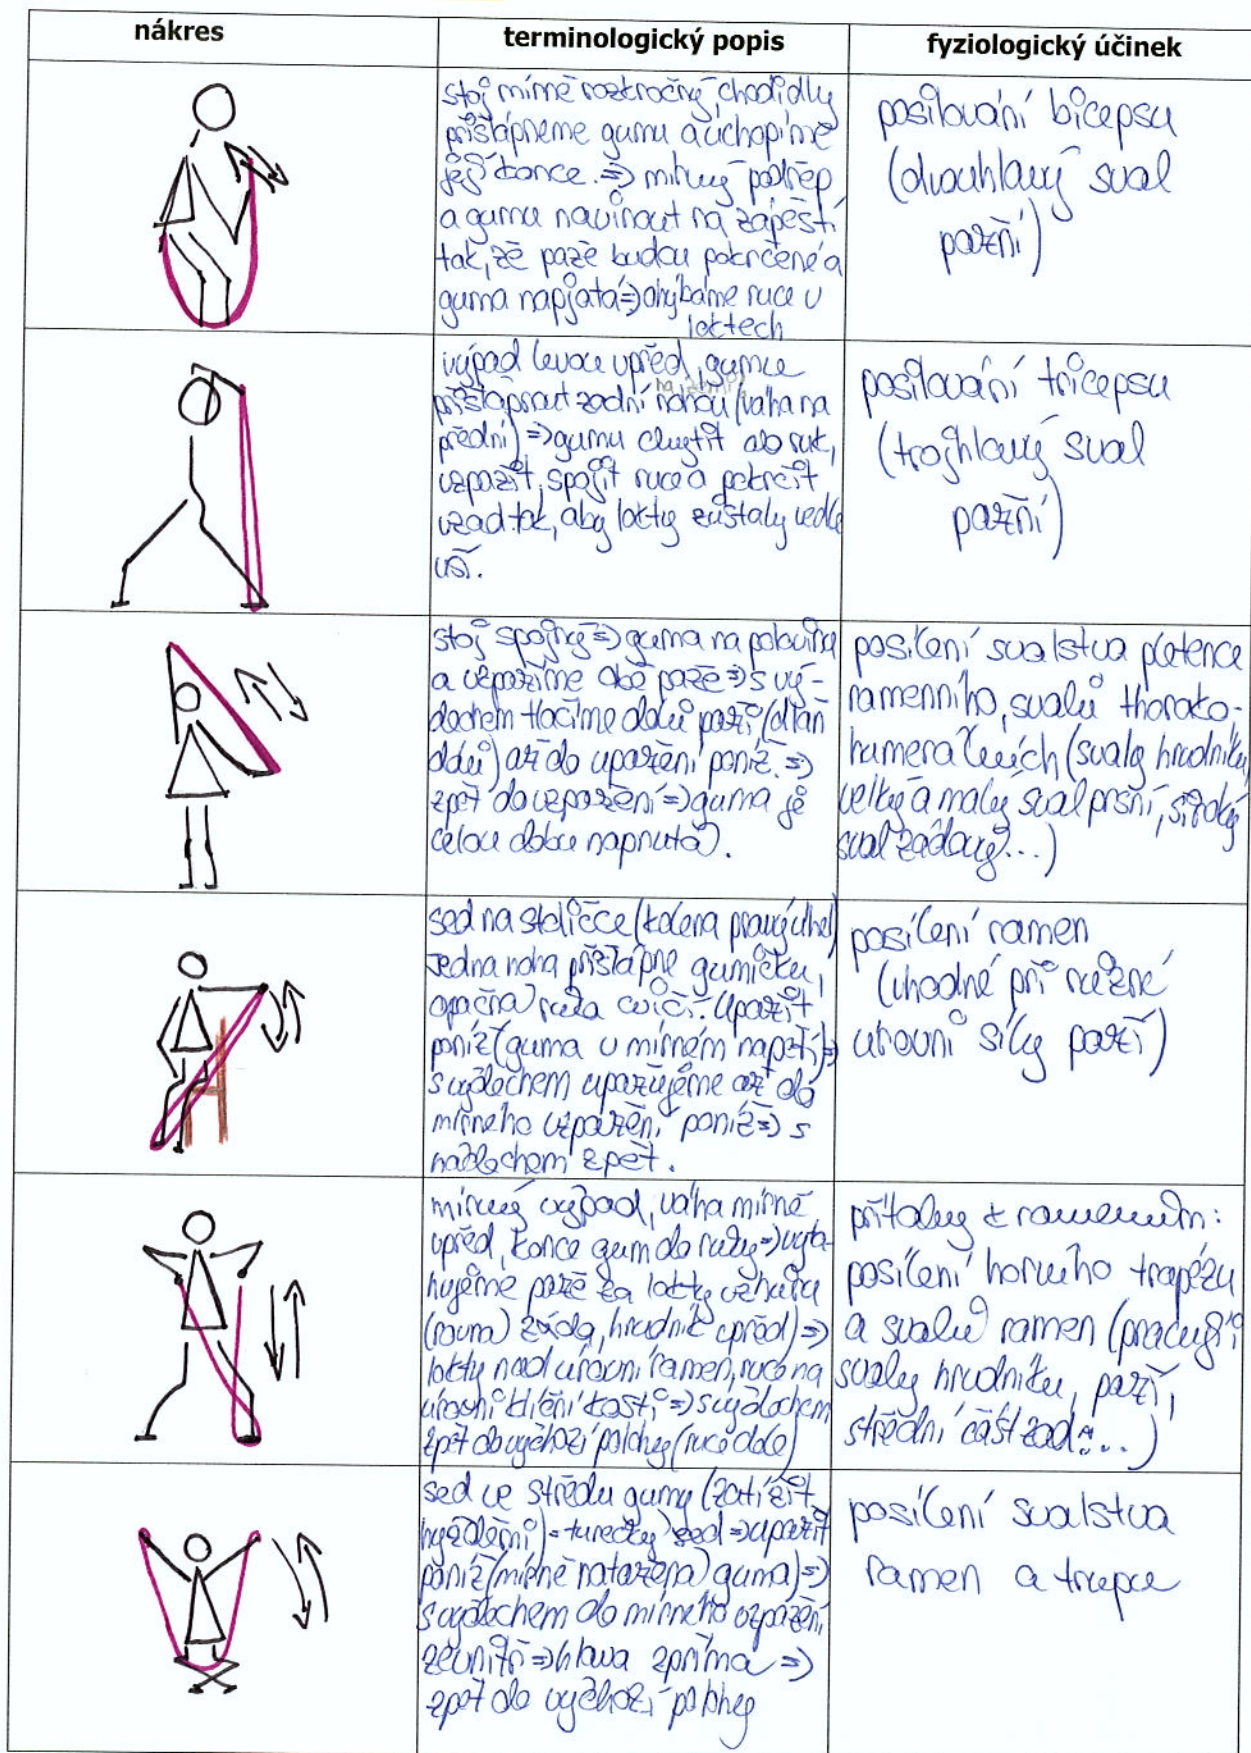 nákres
terminologický popis
fyziologický účinek
stoj mírně rozkročný, chodidly
přišlápneme gumu a uchopíme
její konce. => mírný podřep
a gumu navinout na zápěstí
tak, že paže budou pokrčené a
guma napjatá => ohýbáme ruce v
loktech
posilování bicepsu
(dvouhlavý sval
pažní)
výpad levou vpřed, gumu
přišlápnout zadní nohou (váha na
přední) => gumu chytit do ruk,
vzpažit, spojit ruce a pokrčit
vzad tak, aby lokty zůstaly vedle
uší.
posilování tricepsu
(trojhlavý sval
pažní)
stoj spojný => guma na polovinu
a vzpažíme obě paže => s vý-
dechem tlačíme dolů paži (dlaň
dolů) až do upažení poníž. =>
zpět do vzpažení => guma je
celou dobu napnutá).
posílení svalstva pletence
ramenního, svalů thorako-
humerálních (svaly hrudníku,
velký a malý sval prsní, široký
sval zádový...)
sed na stoličce (kolena pravý úhel)
jedna noha přišlápne gumičku,
opačná ruka cvičí. Upažit
poníž (guma v mírném napětí) =>
s výdechem upažujeme až do
mírného vzpažení poníž => s
nádechem zpět.
posílení ramen
(vhodné při různé
úrovni síly paží)
mírný výpad, váha mírně
vpřed, konce gum do ruky => vyta-
hujeme paže za lokty vzhůru
(rovná záda, hrudník vpřed) =>
lokty nad úrovní ramen, ruce na
úrovni klíční kosti => s výdechem
zpět do výchozí polohy (ruce dole)
přítahy k ramenům:
posílení horního trapézu
a svalů ramen (pracují i
svaly hrudníku, paží,
střední část zad...)
sed ve středu gumy (zatížit
hýžděmi) = turecký sed => upažit
poníž (mírně natažená guma) =>
s výdechem do mírného vzpažení
zevnitř => hlava zpříma =>
zpět do výchozí polohy
posílení svalstva
ramen a trupu